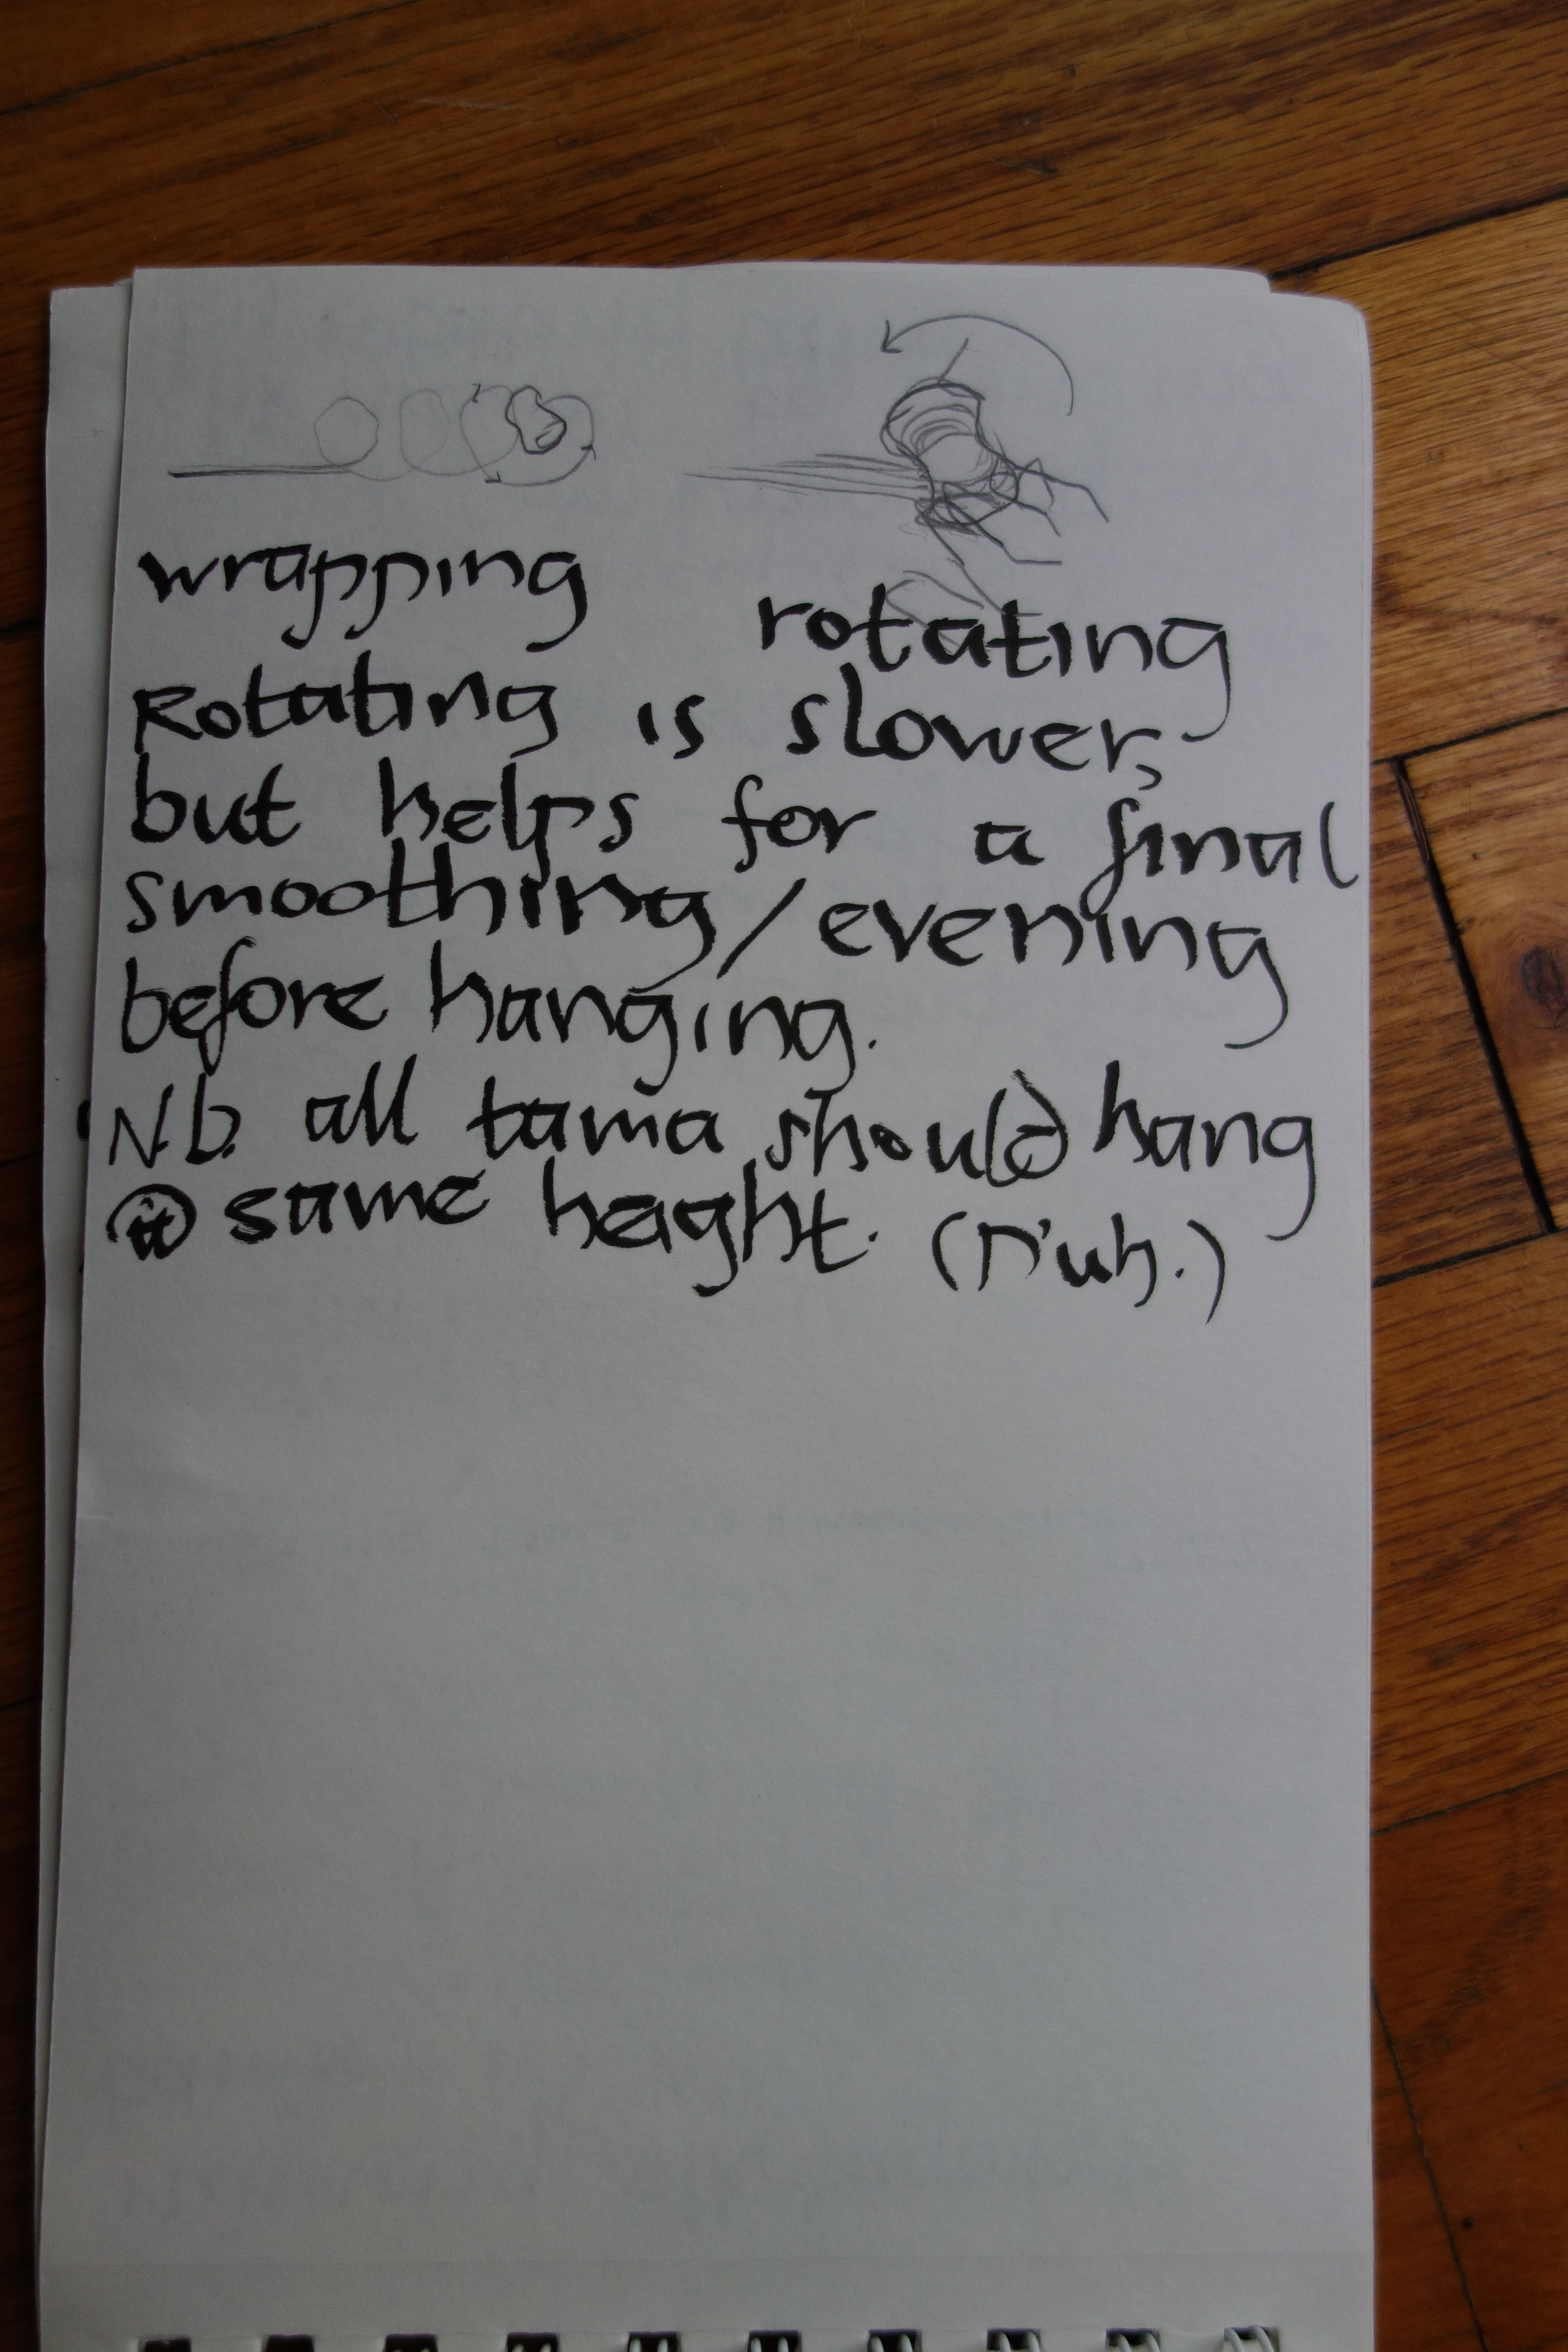 wrapping
rotating
Rotating is slower,
but helps for a final
smoothing/evening
before hanging.
N.b. all tama should hang
@ same height. (D'uh.)